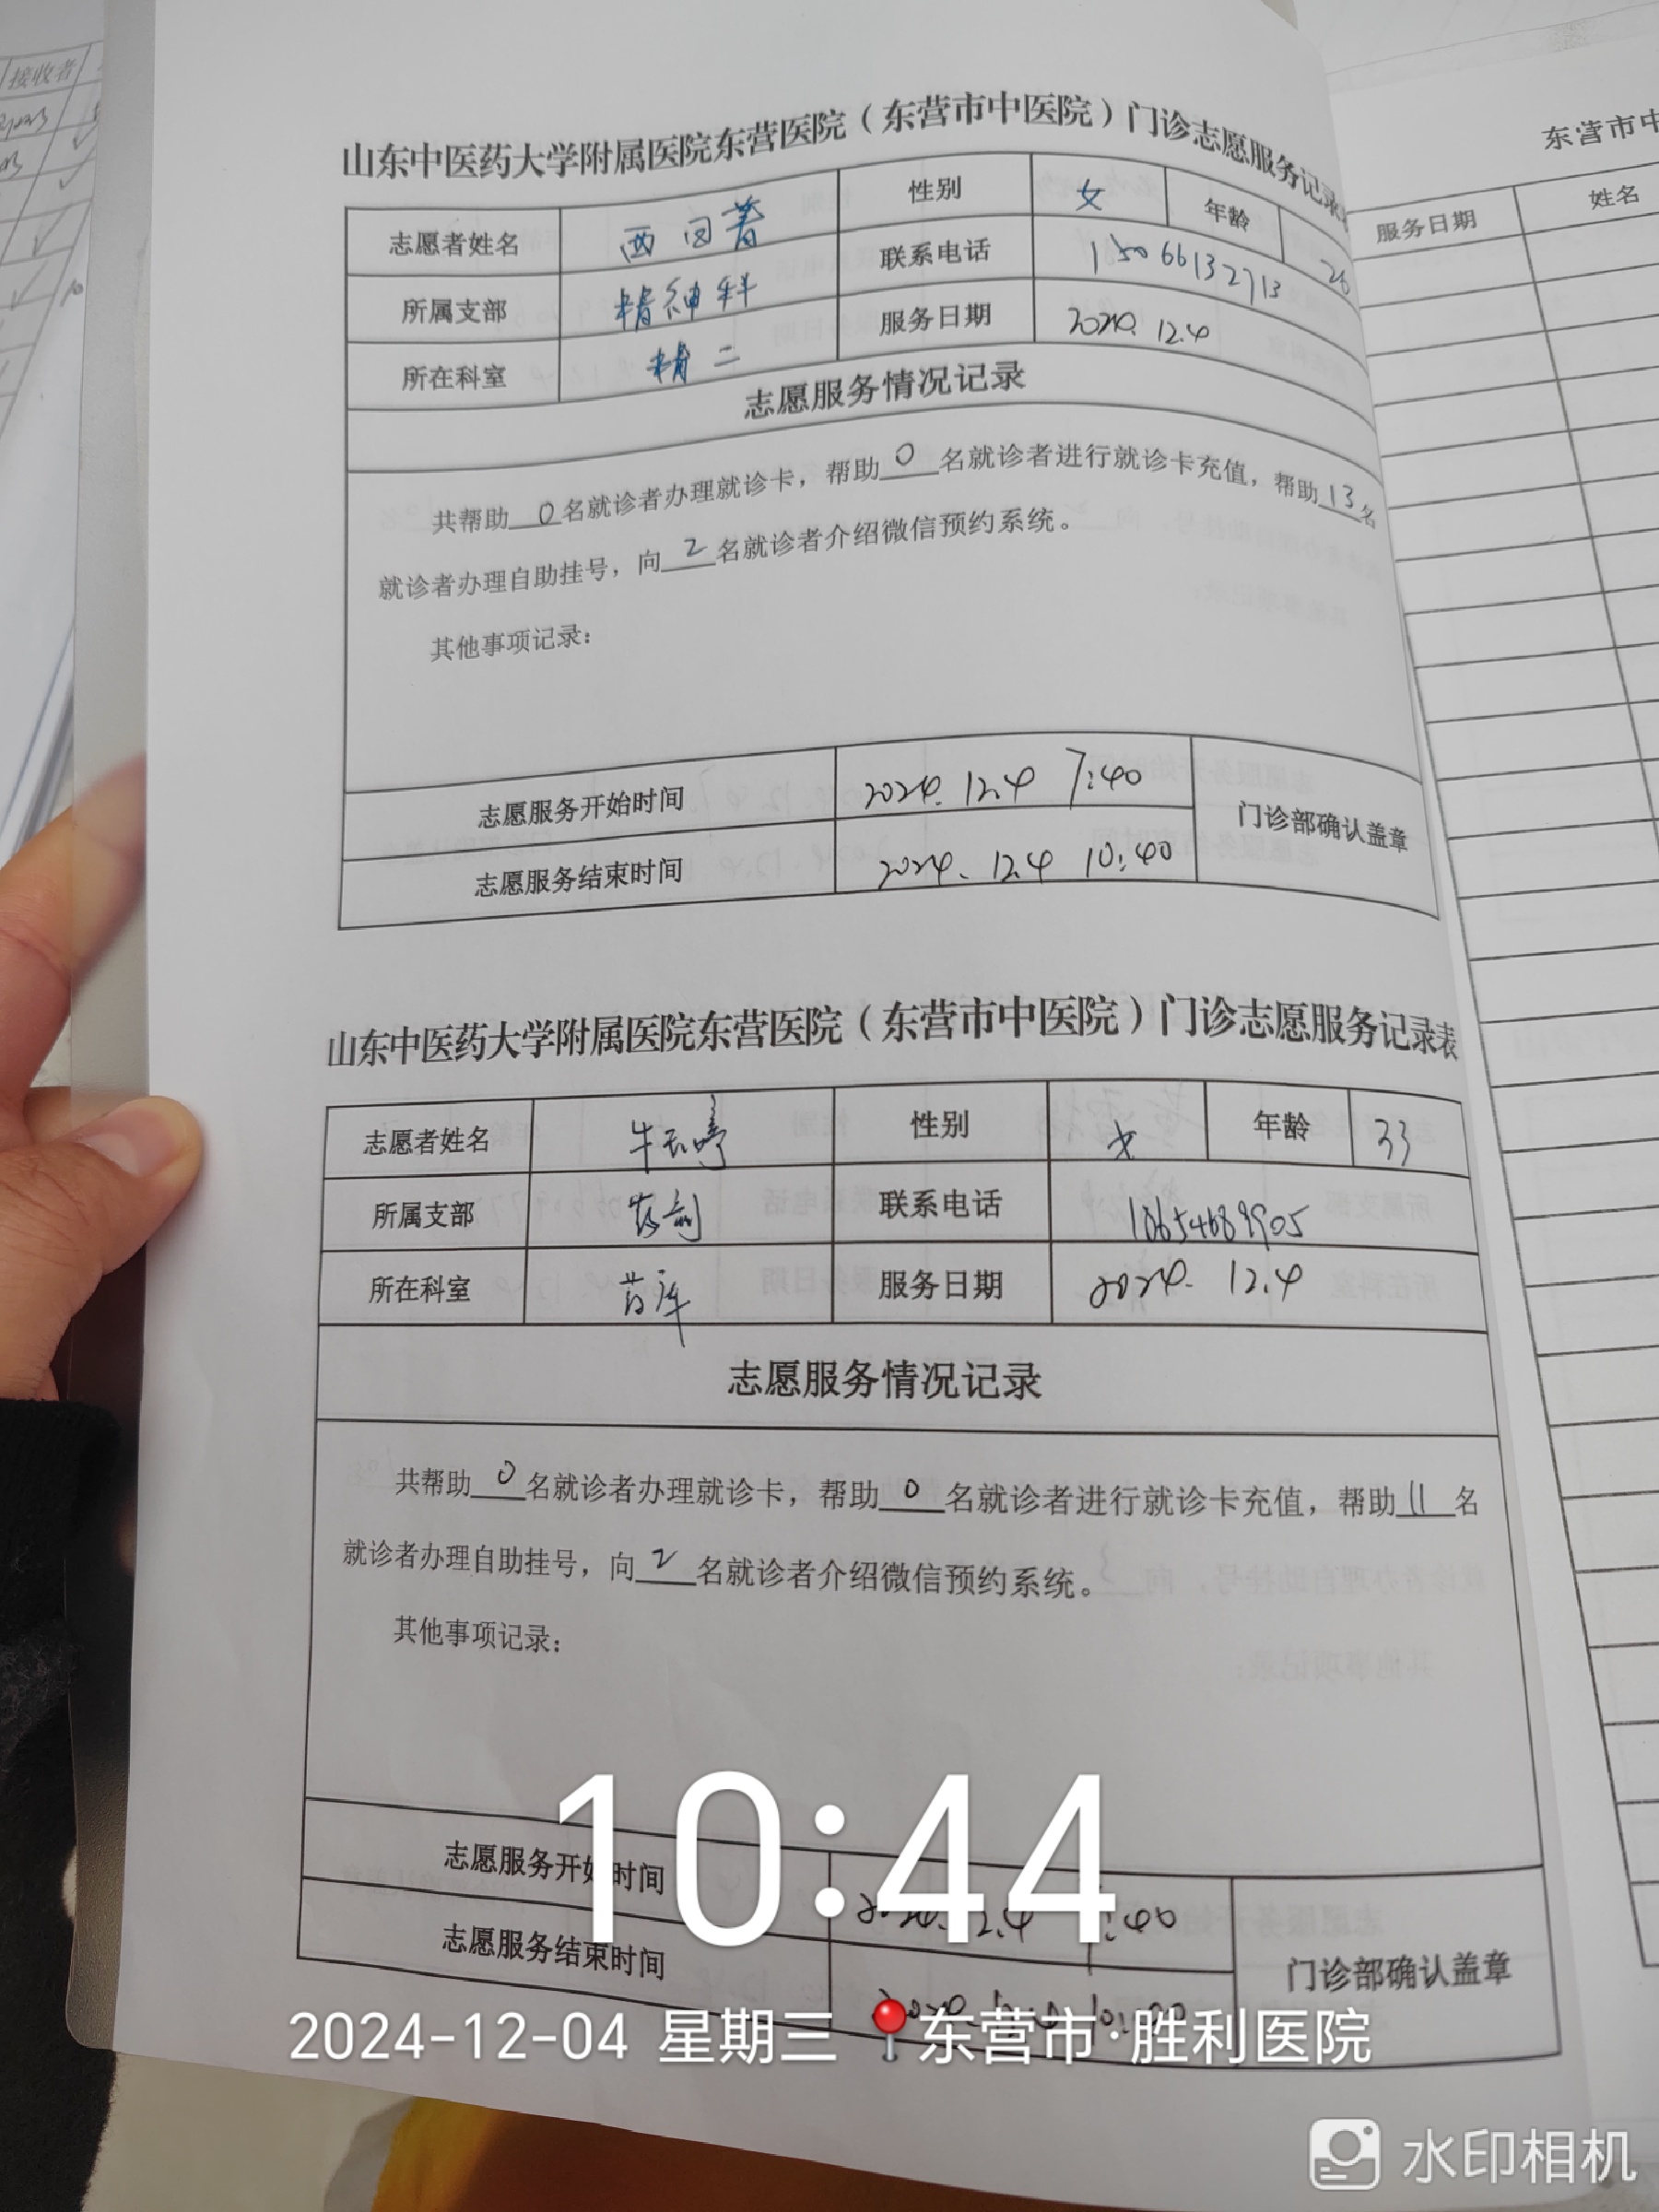 接收者
山东中医药大学附属医院东营医院（东营市中医院）门诊志愿服务记录
志愿者姓名 性别 女 年龄 26
所属支部 精神科 联系电话 15066132713
所在科室 精二 服务日期 2024.12.4
志愿服务情况记录
共帮助0名就诊者办理就诊卡，帮助0名就诊者进行就诊卡充值，帮助13名
就诊者办理自助挂号，向2名就诊者介绍微信预约系统。
其他事项记录：
志愿服务开始时间 2024.12.4 7:40
门诊部确认盖章
志愿服务结束时间 2024.12.4 10:40
山东中医药大学附属医院东营医院（东营市中医院）门诊志愿服务记录表
志愿者姓名 性别 女 年龄 33
所属支部 药剂 联系电话 18654689905
所在科室 药库 服务日期 2024.12.4
志愿服务情况记录
共帮助0名就诊者办理就诊卡，帮助0名就诊者进行就诊卡充值，帮助11名
就诊者办理自助挂号，向2名就诊者介绍微信预约系统。
其他事项记录：
志愿服务开始时间
志愿服务结束时间
门诊部确认盖章
东营市中
服务日期 姓名
10:44
2024-12-04 星期三 东营市·胜利医院
水印相机